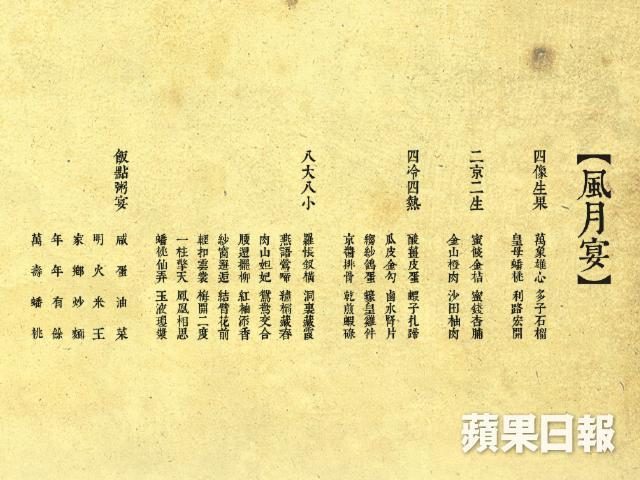 【風月宴】
四像生果
萬象雄心 多子石榴
皇母蟠桃 利路宏開
二京二生
蜜餞金桔 蜜錢杏脯
金山橙肉 沙田柚肉
四冷四熱
酸薑皮蛋 蝦子扎蹄
瓜皮金勾 鹵水腎片
縐紗鴿蛋 蠔皇雞件
京醬排骨 乾煎蝦碌
八大八小
羅帳釵橫 洞裏藏霞
燕語鶯啼 繡榻藏春
肉山妲妃 鴛鴦交合
腰邊擺柳 紅袖添香
紗窗邂逅 結臂花前
輕扣雲裳 梅開二度
一柱擎天 鳳凰相思
蟠桃仙弄 玉液瓊漿
飯點粥宴
咸蛋油菜
明火米王
家鄉炒麵
年年有餘
萬壽蟠桃
蘋果日報